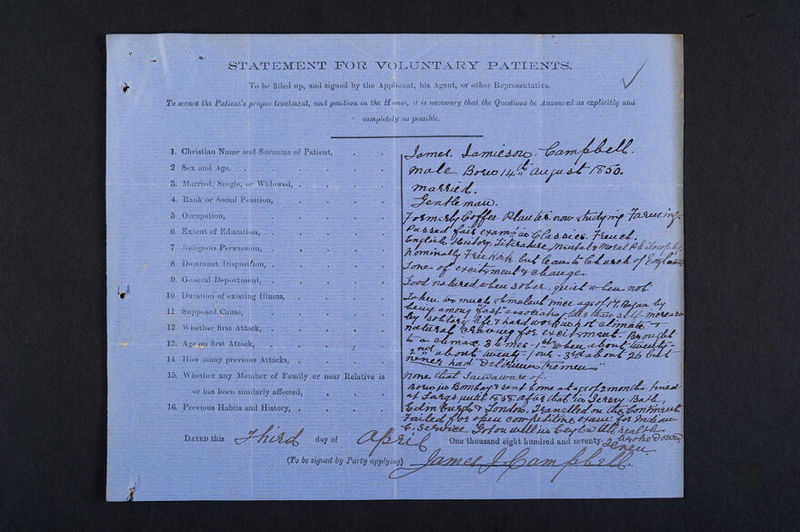 STATEMENT FOR VOLUNTARY PATIENTS.
To be filled up, and signed by the Applicant, his Agent, or other Representative.
To secure the Patient's proper treatment, and position in the House, it is necessary that the Questions be Answered as explicitly and
completely as possible.
1. Christian Name and Surname of Patient, James. Jamieson. Campbell.
2 Sex and Age, Male Born 14th August 1850.
3. Married, Single, or Widowed, Married.
4. Rank or Social Position, Gentleman.
5 Occupation, Formerly Coffee Planter now studying Farming
6 Extent of Education, Passed fair exams in Classics. French.
English History, Literature, Mental & Moral Philosophy
7. Religious Persuasion, Nominally Free Kirk but lean to Church of England
8 Dominant Disposition, Love of excitement & change
9. General Deportment, Good natured when sober, quiet when not
10. Duration of existing Illness, Taken too much stimulant since age of 17. Began by
11 Supposed Cause, being among fast associates, then
by solitary life & hard work in hot climate &
12 Whether first Attack, natural craving for excitement. Brought
13. Age on first Attack, to a climax 3 times - 1st when about twenty-
14 How many previous Attacks, 2nd about twenty-four - 3rd about 26 but
never had "Delirium Tremens"
15. Whether any Member of Family or near Relative is None that I am aware of.
or has been similarly affected, Born in Bombay & sent home at age of 2 months, lived
at Largs until after that in Jersey, Bath,
16. Previous Habits and History, Edinburgh & London. Travelled on the Continent
Failed for open competitive exam for Indian
C. Service. Got on well in Ceylon till health
broke down
DATED this Third day of April One thousand eight hundred and seventy-seven
(To be signed by Party applying) James J. Campbell.